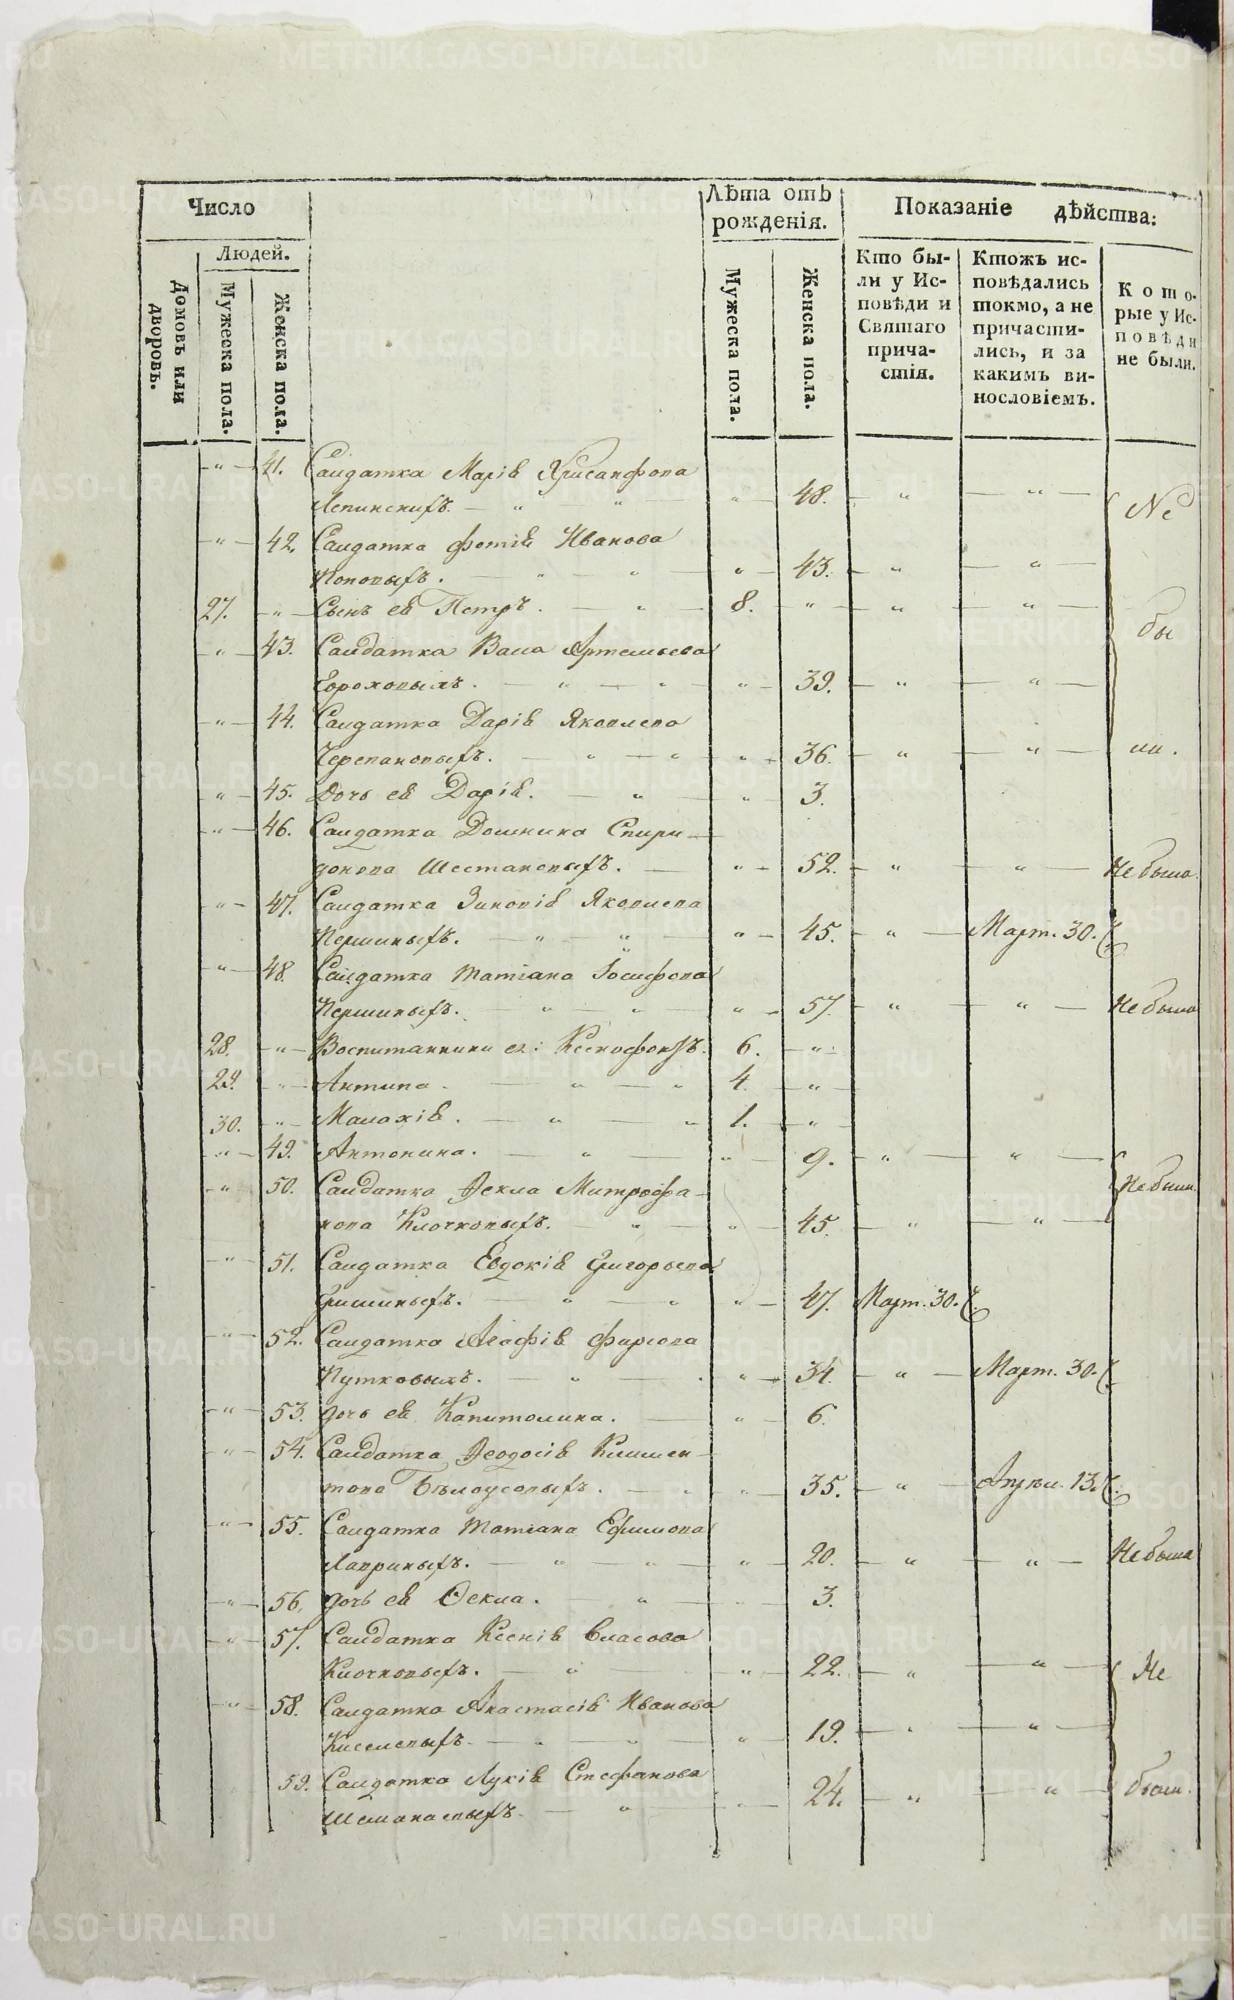 Число
Людей.
Домовъ или дворовъ.
Мужеска пола.
Женска пола.
Лѣта отъ рожденія.
Мужеска пола.
Женска пола.
Показаніе дѣйства:
Кто бы-
ли у Ис-
повѣди и
Святаго
прича-
стія.
Ктожъ ис-
повѣдались
токмо, а не
причасти-
лись, и за
какимъ ви-
нословіемъ.
Кото-
рые у Ис-
повѣди
не были.
" 41. Салдатка Марія Хрисанфова
Лепинскихъ. " " " 48. " " Не
" 42. Салдатка Фотія Иванова
Поповыхъ. " " " 43. " "
27. " Сынъ ея Петръ. " 8. " " " бы
" 43. Салдатка Васа Артемьева
Гороховыхъ. " " " 39. " "
" 44. Салдатка Дарія Яковлева
Черепановыхъ. " " " 36. " " ли.
" 45. Дочь ея Дарія. " " 3.
" 46. Салдатка Домника Спири-
донова Шестаковыхъ. " 52. " " Не была.
" 47. Салдатка Зиновія Яковлева
Першиныхъ. " " " 45. " Март. 30.
" 48. Салдатка Татіана Іосифова
Першиныхъ. " " " 57. " " Не была
28. " Воспитанники ея: Ксенофонтъ. 6. "
29. " Антипа. " " 4. "
30. " Малахія. " " 1. "
" 49. Антонина. " " 9. " " Не были.
" 50. Салдатка Ѳекла Митрофа-
нова Клочковыхъ. " " 45. " "
" 51. Салдатка Евдокія Григорьева
Гришиныхъ. " " " 47. Март. 30.
" 52. Салдатка Агафія Фирсова
Путковыхъ. " " 34. " Март. 30.
" 53. дочь ея Капитолина. " 6.
" 54. Салдатка Ѳеодосія Климен-
това Бѣлоусовыхъ. " " 35. " Апрѣл. 13.
" 55. Салдатка Татіана Ефимова
Лавриныхъ. " " " 20. " " Не была
" 56. дочь ея Ѳекла. " " 3.
" 57. Салдатка Ксенія Власова
Клочковыхъ. " " 22. " " Не
" 58. Салдатка Анастасія Иванова
Киселевыхъ. " " " 19. " "
59. Салдатка Лукія Стефанова
" 24. " " были.
METRIKI.GASO-URAL.RU